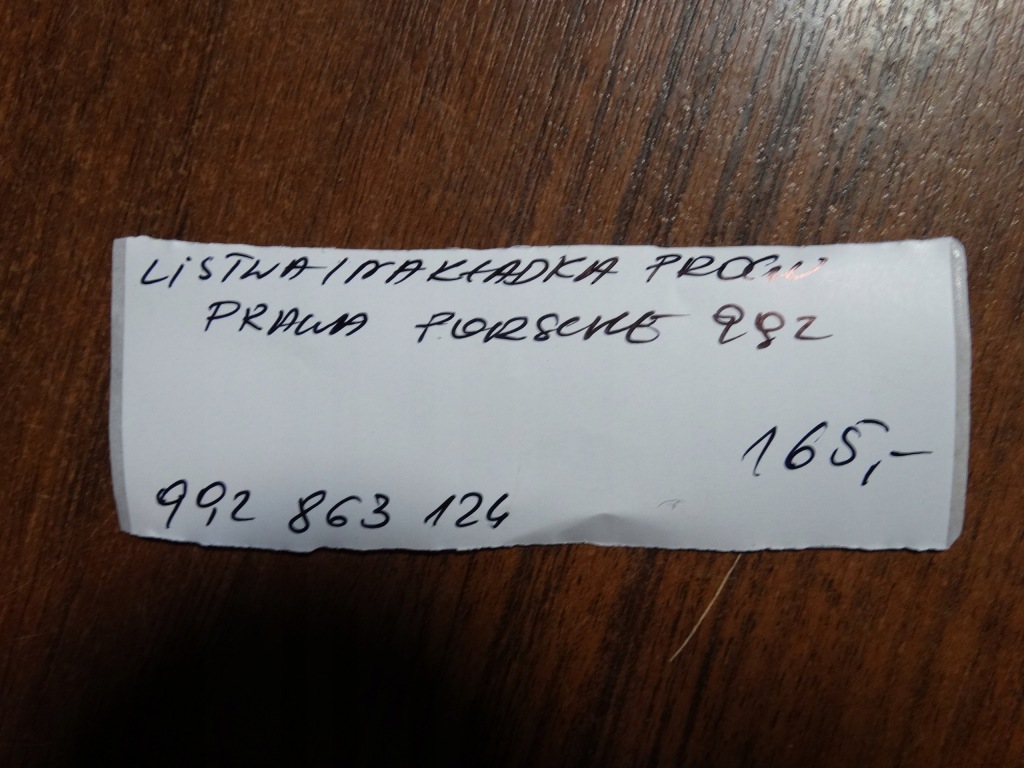 LISTWA/NAKŁADKA PROGU
PRAWA PORSCHE 992
165,-
992 863 124